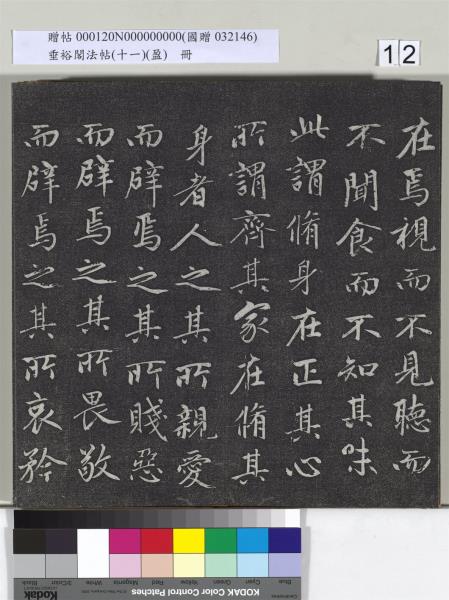 贈帖 000120N000000000(國贈 032146)
垂裕閣法帖(十一)(盈) 冊
12
在焉視而不見聽而
不聞食而不知其味
此謂脩身在正其心
所謂齊其家在脩其
身者人之其所親愛
而辟焉之其所賤惡
而辟焉之其所畏敬
而辟焉之其所哀矜
KODAK Color Control Patches
Blue
Cyan
Green
Yellow
Red
Magenta
White
3/Color
Black